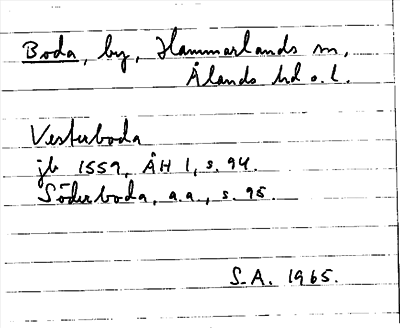 Boda, by, Hammarlands sn,
Ålands hd o. l.
Vesterboda
jb 1559, ÅH 1, s. 94.
Söderboda, a.a., s. 95.
S.A. 1965.